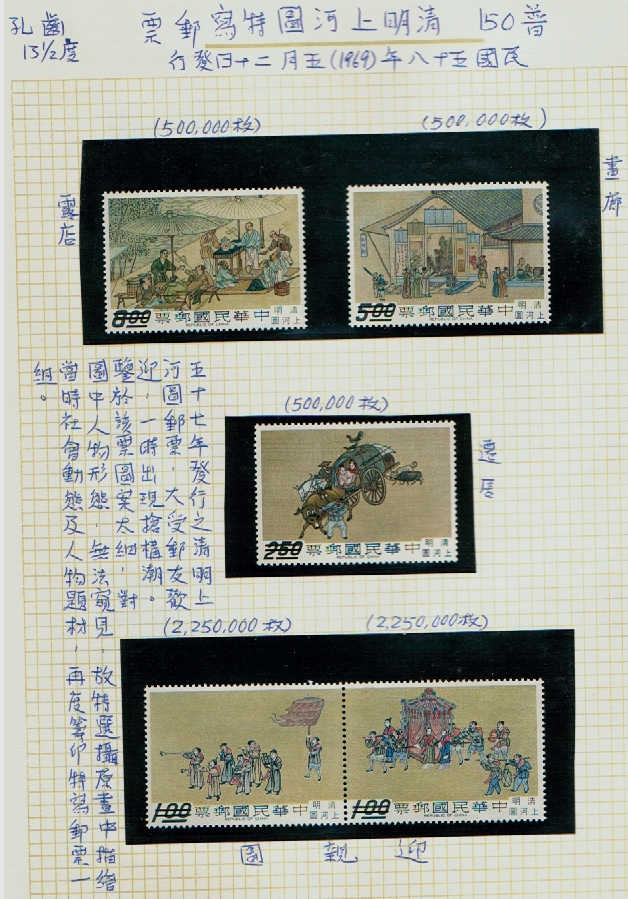 普150 清明上河圖特寫郵票
孔齒
13½度
民國五十八年(1969)五月二十四日發行
(500,000枚)
(500,000枚)
畫廊
露店
5.00 中華民國郵票
REPUBLIC OF CHINA
清明上河圖
8.00 中華民國郵票
REPUBLIC OF CHINA
清明上河圖
五十七年發行之清明上
河圖郵票，大受郵友歡
迎，一時出現搶購潮。
鑒於該票圖案太細，對
圖中人物形態，無法窺見，故特選攝原畫中描繪
當時社會動態及人物題材，再度籌印特寫郵票一
組。
(500,000枚)
遷居
2.50 中華民國郵票
REPUBLIC OF CHINA
清明上河圖
(2,250,000枚)
(2,250,000枚)
1.00 中華民國郵票
REPUBLIC OF CHINA
清明上河圖
1.00 中華民國郵票
REPUBLIC OF CHINA
清明上河圖
迎親圖